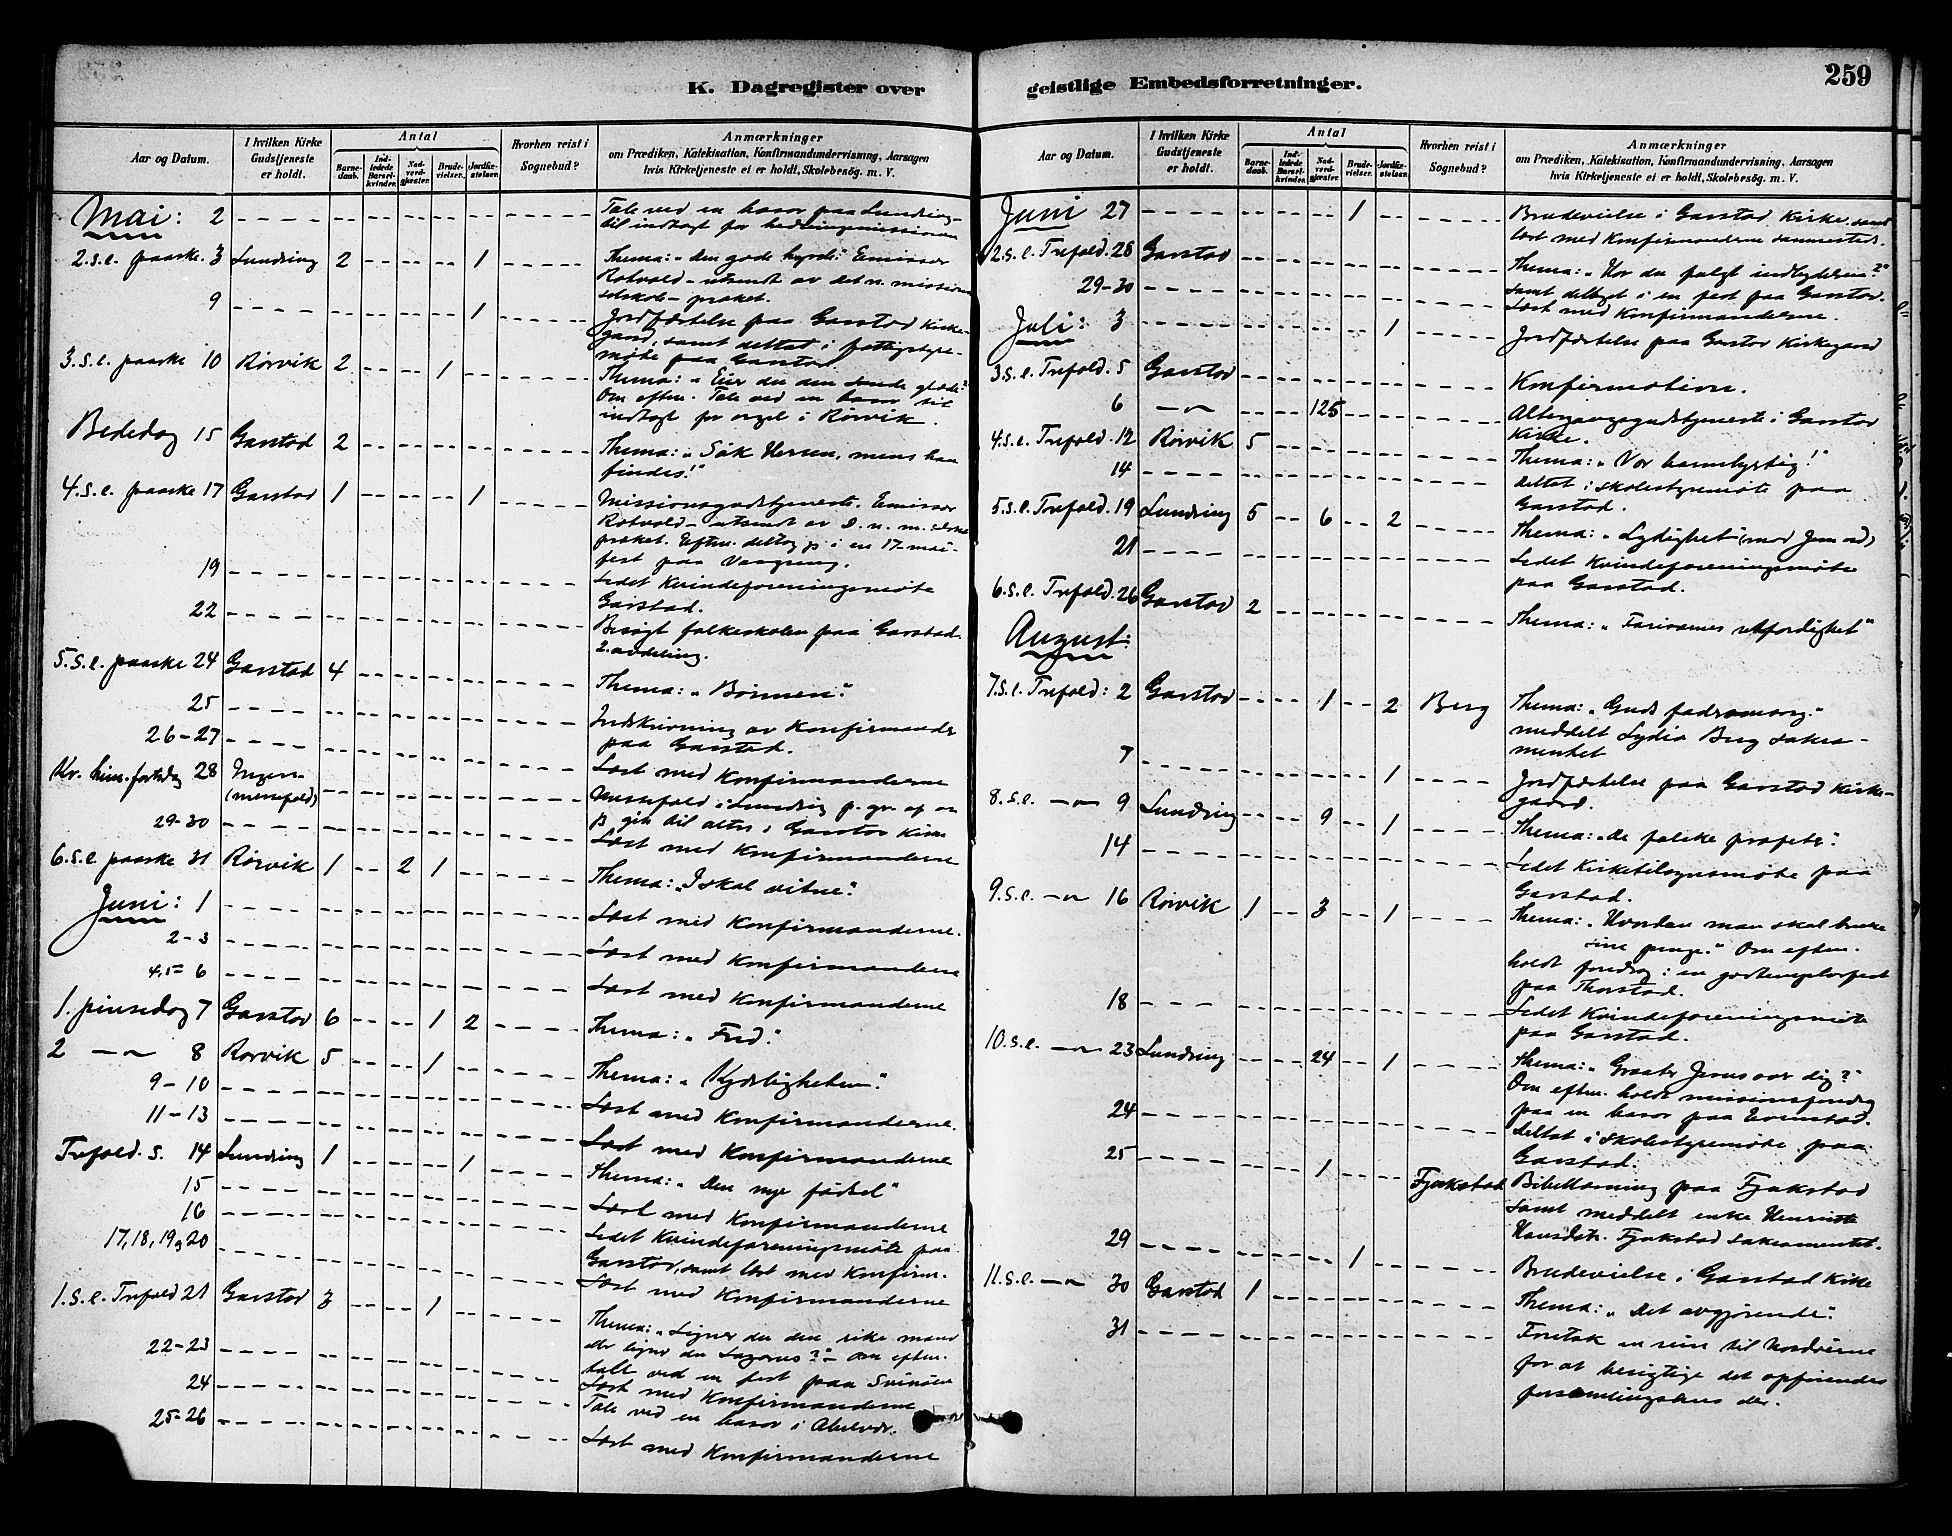 K. Dagregister over
Aar og Datum.
I hvilken Kirke Gudstjeneste er holdt.
Antal
Barnedaab.
Indledede Barselkvinder.
Nadverdgjæster.
Brudevielser.
Jordfæstelser.
Hvorhen reist i Sognebud?
Anmærkninger
om Prædiken, Katekisation, Konfirmandundervisning, Aarsagen
hvis Kirketjeneste ei er holdt, Skolebesøg. m. V.
Mai: 2 Tale ved en basar paa Lundring
til indtægt for hedningemissionen
2. s. e. paaske. 3 Lundring 2 1 Thema: „Den gode hyrde". Emissær
Rotvold – utsendt av det n. missions
selskab – præket.
9 1 Jordfæstelse paa Garstad Kirke-
gaard, samt deltat i fattigstyre-
møte paa Garstad.
3. s. e. paaske 10 Rørvik 2 1 Thema: „Eier du den sande glæde?"
Om eftm. Tale ved en basar til
indtægt for orgel i Rørvik.
Bededag 15 Garstad 2 Thema: „Søk Herren, mens han
findes!"
4. s. e. paaske 17 Garstad 1 1 Missionsgudstjeneste. Emissær
Rotvold – utsendt av d. n. m. selsk
præket. Eftm. deltog jeg i en 17-mai-
fest paa Vaageng.
19 Ledet Kvindeforeningsmøte
Garstad.
22 Besøgt folkeskolen paa Garstad
2. avdeling.
5. s. e. paaske 24 Garstad 4 Thema: „Bønnen".
25 Indskrivning av Konfirmander
paa Garstad.
26-27 Læst med Konfirmanderne
Kr. him. fartsdag 28 Ingen
(messefald) Messefald i Lundring p. gr. af
gik til alters i Garstad Kirke
29-30 Læst med Konfirmanderne
6. s. e. paaske 31 Rørvik 1 2 1 Thema: „I skal vitne".
Juni: 1 Læst med Konfirmanderne.
2-3 Læst med Konfirmanderne
4, 5 = 6 Læst med Konfirmanderne
1. pinsedag 7 Garstad 6 1 2 Thema: „Fred".
2 — 8 Rørvik 5 1 Thema: „Kjærligheten".
9-10 Læst med Konfirmanderne.
11-13 Læst med Konfirmanderne
Trefold. s. 14 Lundring 1 1 Thema: „Den nye fødsel"
15 Læst med Konfirmanderne
16 Ledet Kvindeforeningsmøte paa
Garstad, samt læst med Konfirm.
17, 18, 19 og 20 Læst med Konfirmanderne
1. s. e. Trefold 21 Garstad 3 1 Thema: „Ligner du den rike mand
eller ligner du Lazarus?" – Om eftm.
talt ved en fest paa Svinøen
22-23 Læst med Konfirmanderne
24 Tale ved en basar i Abelvær.
25-26 Læst med Konfirmanderne
geistlige Embedsforretninger.
259
Aar og Datum.
I hvilken Kirke Gudstjeneste er holdt.
Antal
Barnedaab.
Indledede Barselkvinder.
Nadverdgjæster.
Brudevielser.
Jordfæstelser.
Hvorhen reist i Sognebud?
Anmærkninger
om Prædiken, Katekisation, Konfirmandundervisning, Aarsagen
hvis Kirketjeneste ei er holdt, Skolebesøg. m. V.
Juni 27 1 Brudevielse i Garstad Kirke, samt
læst med Konfirmanderne sammesteds.
2. s. e. Trefold. 28 Garstad Thema: „Har du fulgt indbydelsen?"
samt deltaget i en fest paa Garstad.
29-30 Læst med Konfirmanderne.
Juli: 3 1 Jordfæstelse paa Garstad Kirkegaard
3. s. e. Trefold. 5 Garstad Konfirmation.
6 — 125 Altergangsgudstjeneste i Garstad
Kirke.
4. s. e. Trefold. 12 Rørvik 5 Thema: „Vær barmhjertig!"
14 Deltat i skolestyremøte paa
Garstad.
5. s. e. Trefold. 19 Lundring 5 6 2 Thema: „Lydighet (mod Jesu ord)
21 Ledet Kvindeforeningsmøte
paa Garstad.
6. s. e. Trefold. 26 Garstad 2 Thema: „Farisæernes retfærdighet"
August:
7. s. e. Trefold: 2 Garstad 1 2 Berg Thema: „Guds fadromsorg."
meddelt Lydia Berg sakra-
mentet
7 1 Jordfæstelse paa Garstad Kirke-
gaard.
8. s. e. — 9 Lundring 9 1 Thema: „De falske profeter".
14 Ledet Kirketilsynsmøte paa
Garstad.
9. s. e. — 16 Rørvik 1 3 1 Thema: „Hvordan man skal bruke
sine penge." Om eftm.
holdt foredrag i en godtemplarfest
paa Thorstad.
18 Ledet Kvindeforeningsmøte
paa Garstad.
10. s. e. — 23 Lundring 24 1 Thema: „Graater Jesus over dig?"
Om eftm. holdt missionsforedrag
paa en basar paa Evenstad.
24 Deltat i skolestyremøte paa
Garstad.
25 1 Fjukstad Bibellæsning paa Fjukstad
samt meddelt enke Henriette
Hansdtr. Fjukstad sakramentet.
29 1 Brudevielse i Garstad Kirke
11. s. e. — 30 Garstad 1 Thema: „Det avgjørende".
31 Foretok en reise til Nordværne
for at besigtige det opførendes
forsamlingshus der.